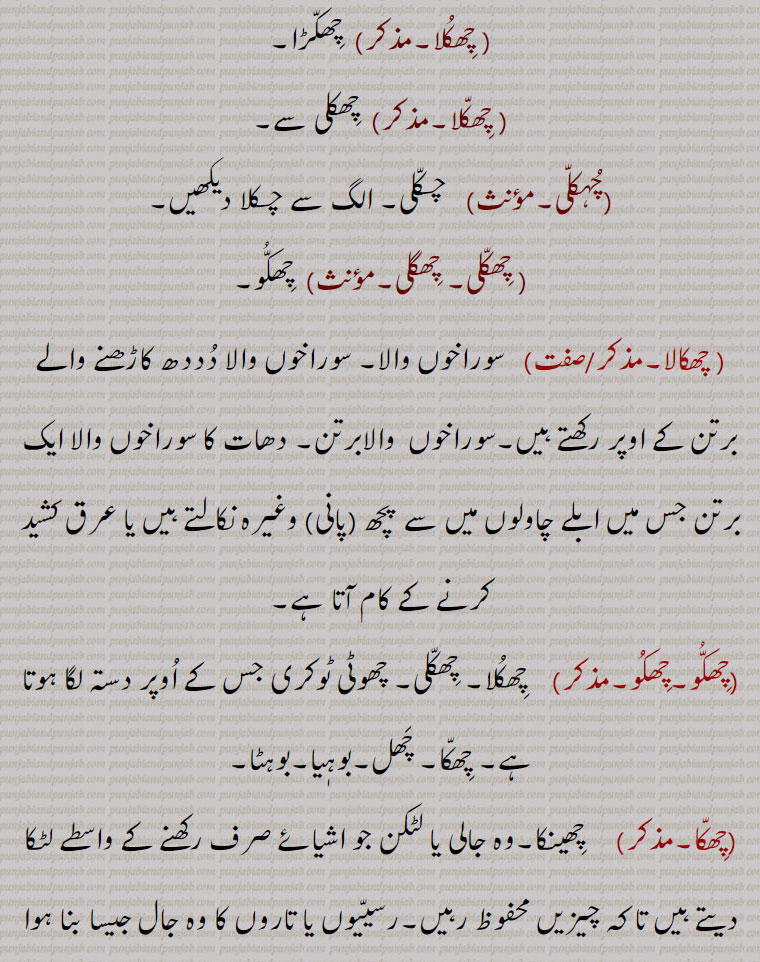 (چِھکُلا۔مذکر) چِھکّڑا۔
(چِھکّلا۔مذکر) چِھکلی سے۔
(چُہکلّی۔مؤنث) چسکّلی۔ الگ سے چسکلا دیکھیں۔
(چِھکّلی۔چِھگلی۔مؤنث) چِھکُّو۔
(چھکالا۔مذکر/صفت) سوراخوں والا۔ سوراخوں والا دُددھ کاڑھنے والے
برتن کے اوپر رکھتے ہیں۔سوراخوں والابرتن۔ دھات کا سوراخوں والا ایک
برتن جس میں ابلے چاولوں میں سے پچھ (پانی) وغیرہ نکالتے ہیں یا عرق کشید
کرنے کے کام آتا ہے۔
(چِھکُّو۔چِھکُو۔مذکر) چِھکُلا۔ چِھکّلی۔ چھوٹی ٹوکری جس کے اُوپر دستہ لگا ہوتا
ہے۔ چِھکّا۔ چَھل۔بوہیا۔بوہٹا۔
(چِھکّا۔مذکر) چِھینکا۔وہ جالی یا لٹکن جو اشیائے صرف رکھنے کے واسطے لٹکا
دیتے ہیں تاکہ چیزیں محفوظ رہیں۔رسیّیوں یا تاروں کا وہ جال جیسا بنا ہوا